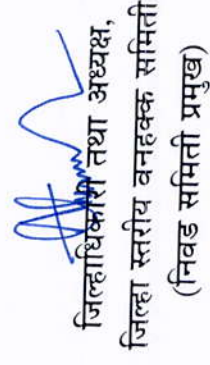 जिल्हाधिकारी तथा अध्यक्ष,
जिल्हा स्तरीय वनहक्क समिती
(निवड समिती प्रमुख)